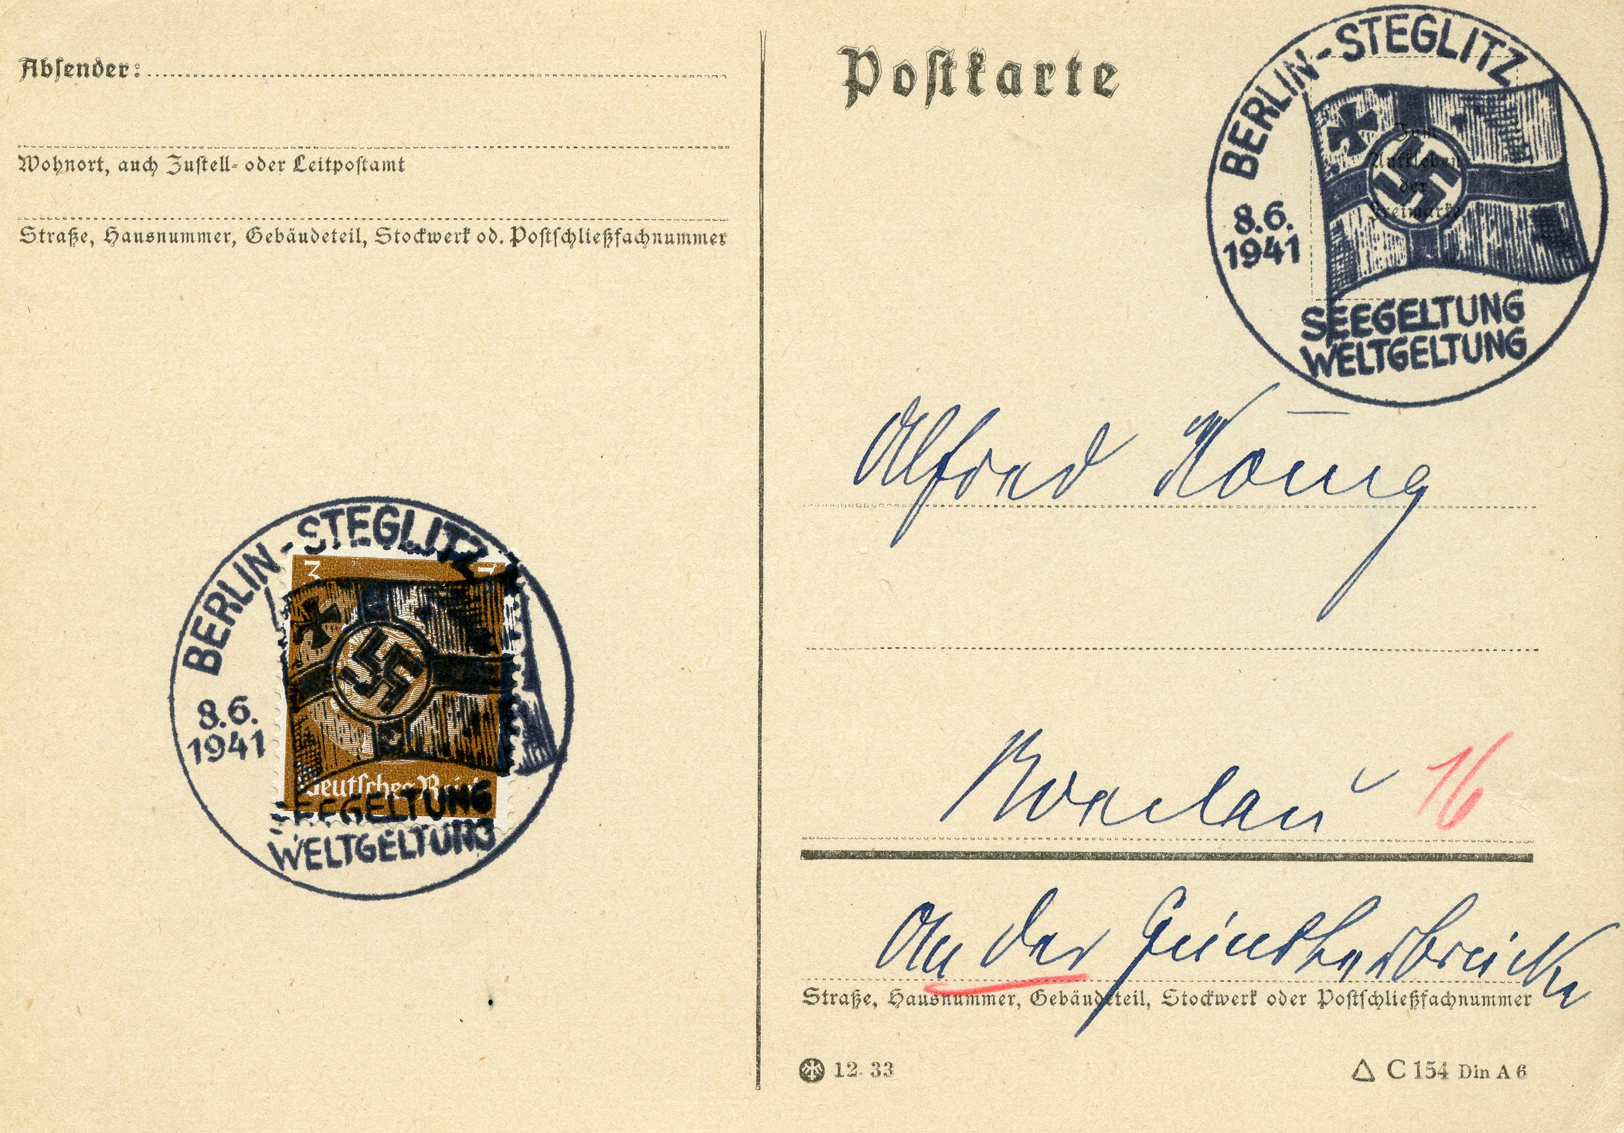 Absender:
Wohnort, auch Zustell- oder Leitpostamt
Straße, Hausnummer, Gebäudeteil, Stockwerk od. Postschließfachnummer
BERLIN-STEGLITZ
8.6.
1941
3 3
Deutsches Reich
SEEGELTUNG
WELTGELTUNG
Postkarte
BERLIN-STEGLITZ
Zum
Aufkleben
der
Freimarke
8.6.
1941
SEEGELTUNG
WELTGELTUNG
Alfred König
Breslau 16
An der Güntherbrücke
Straße, Hausnummer, Gebäudeteil, Stockwerk oder Postschließfachnummer
12. 33
C 154 Din A 6